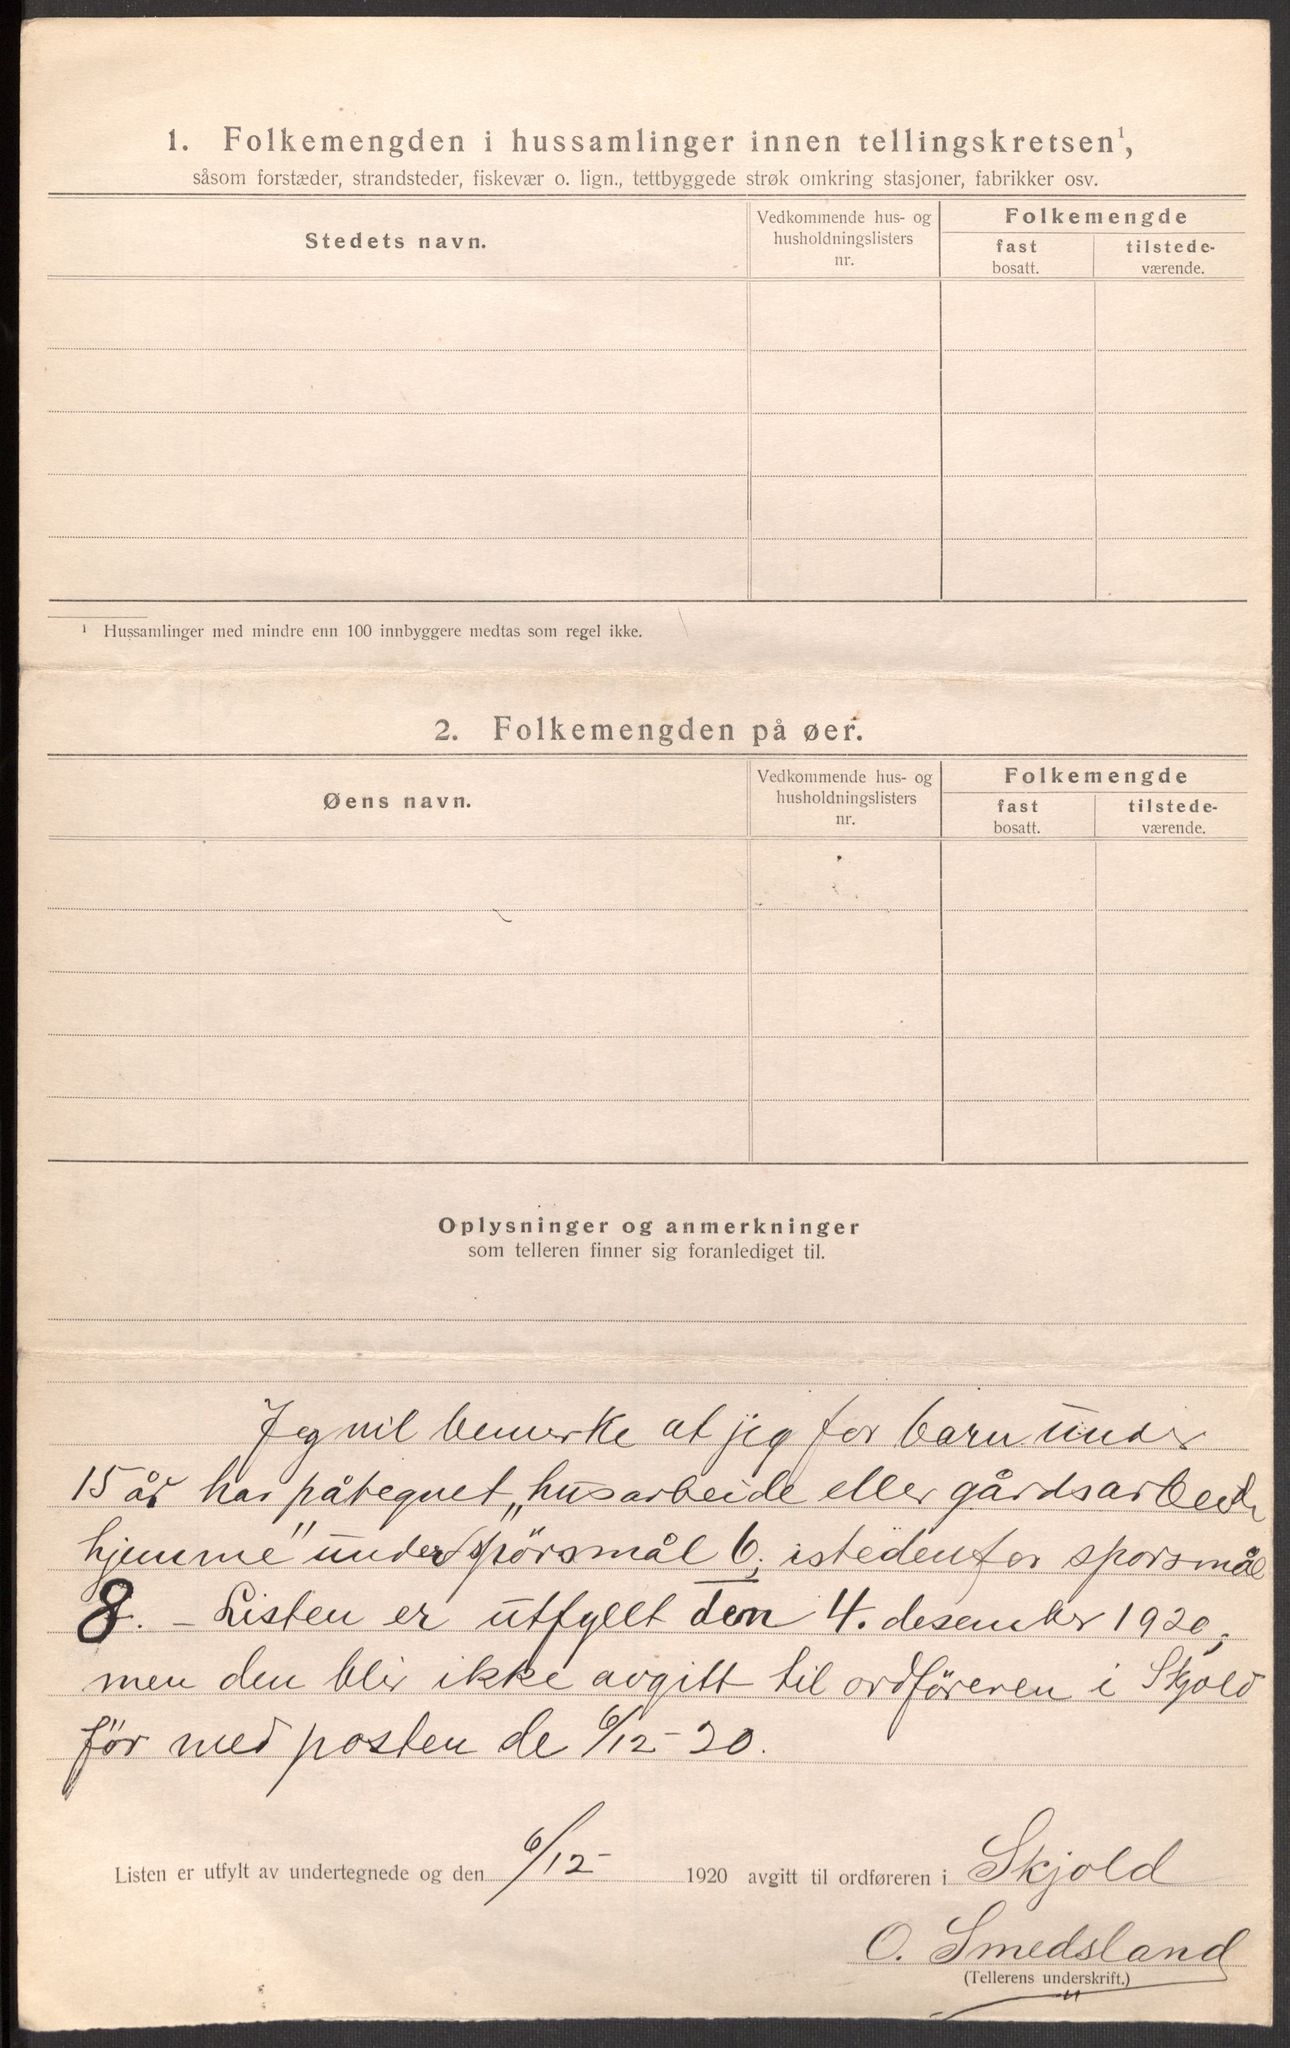 1. Folkemengden i hussamlinger innen tellingskretsen¹,
såsom forstæder, strandsteder, fiskevær o. lign., tettbyggede strøk omkring stasjoner, fabrikker osv.
Stedets navn.
Vedkommende hus- og
husholdningslisters
nr.
Folkemengde
fast
bosatt.
tilstede-
værende.
¹ Hussamlinger med mindre enn 100 innbyggere medtas som regel ikke.
2. Folkemengden på øer.
Øens navn.
Vedkommende hus- og
husholdningslisters
nr.
Folkemengde
fast
bosatt.
tilstede-
værende.
Oplysninger og anmerkninger
som telleren finner sig foranlediget til.
Jeg vil bemerke at jeg for barn under
15 år har påtegnet „husarbeide eller gårdsarbeide
hjemme" under spörsmål 6, istedenfor sporsmål
8. – Listen er utfyllt den 4. desember 1920,
men den blir ikke avgitt til ordföreren i Skjold
för med posten de 6/12-20.
Listen er utfylt av undertegnede og den 6/12- 1920 avgitt til ordføreren i Skjold
O. Smedsland
(Tellerens underskrift.)